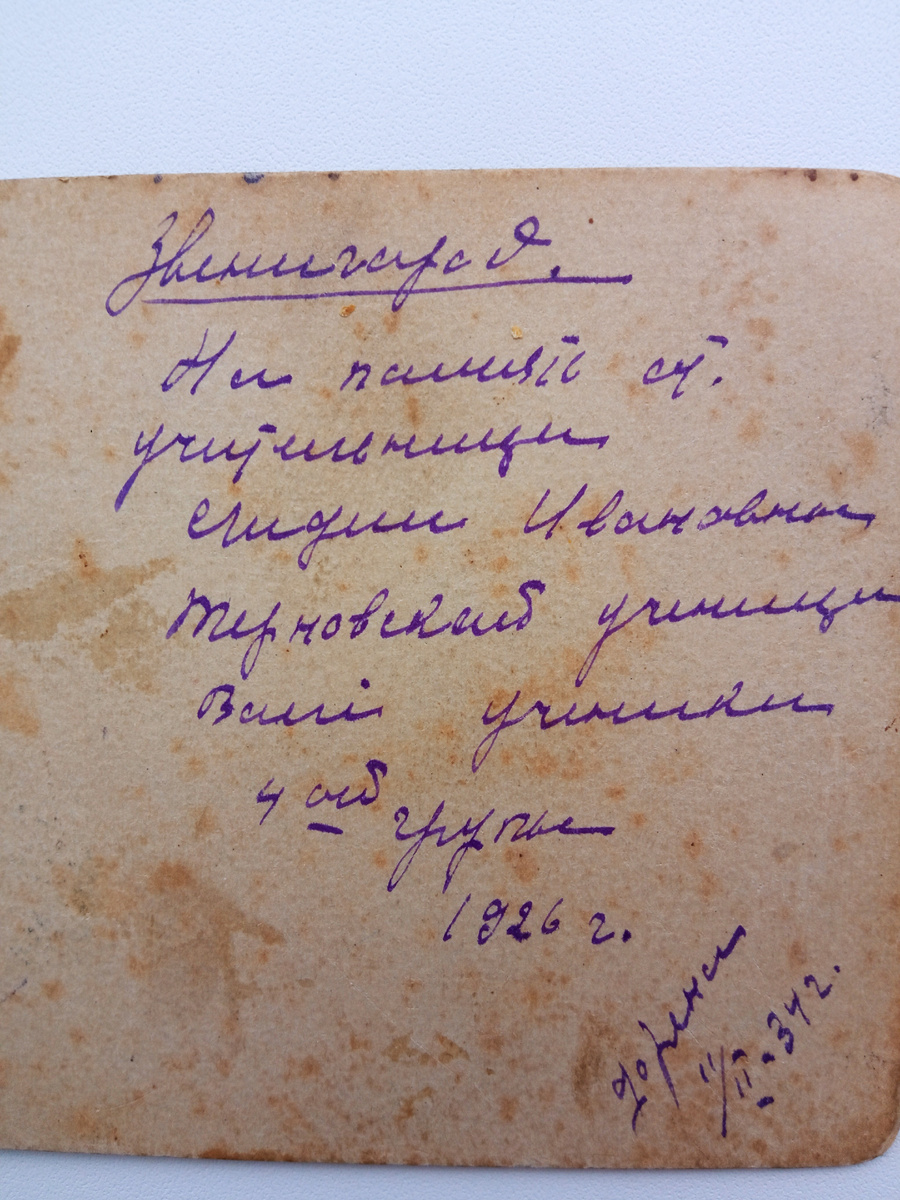 Звенигород.
На память от.
учительници
Лидии Ивановны
Терновской ученици
Вашi ученики
4 ой групы
1926 г.
11/II-34 г.